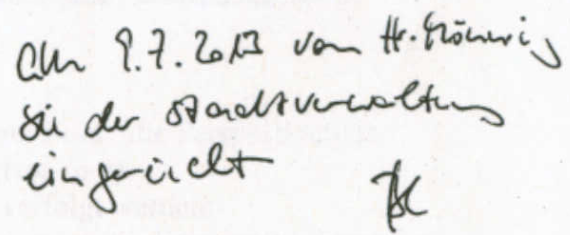 Am 9.7.2013 von Hr.
bei der Stadtverwaltung
eingereicht